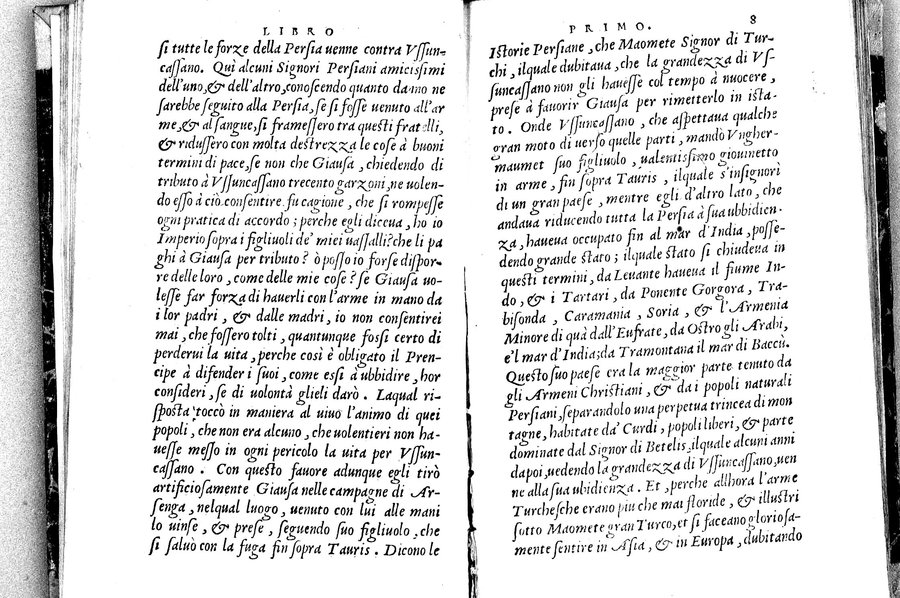 LIBRO
si tutte le forze della Persia uenne contra Vssun-
cassano. Quì alcuni Signori Persiani amicissimi
dell'uno, & dell'altro, conoscendo quanto danno ne
sarebbe seguito alla Persia, se si fosse uenuto all'ar
me, & al sangue, si framessero tra questi fratelli,
& ridussero con molta destrezza le cose à buoni
termini di pace, se non che Giausa, chiedendo di
tributo à Vssuncassano trecento garzoni, ne uolen-
do esso à ciò consentire, fu cagione, che si rompesse
ogni pratica di accordo; perche egli diceua, ho io
Imperio sopra i figliuoli de' miei uassalli? che li pa
ghi à Giausa per tributo? ò posso io forse dispor-
re delle loro, come delle mie cose? se Giausa uo-
lesse far forza di hauerli con l'arme in mano da
i lor padri, & dalle madri, io non consentirei
mai, che fossero tolti, quantunque fossi certo di
perderui la uita, perche così è obligato il Pren-
cipe à difender i suoi, come essi à ubbidire, hor
consideri, se di uolontà glieli darò. Laqual ri-
sposta toccò in maniera al uiuo l'animo di quei
popoli, che non era alcuno, che uolentieri non ha-
uesse messo in ogni pericolo la uita per Vssun-
cassano. Con questo fauore adunque egli tirò
artificiosamente Giausa nelle campagne di Ar-
senga, nelqual luogo, uenuto con lui alle mani
lo uinse, & prese, seguendo suo figliuolo, che
si saluò con la fuga fin sopra Tauris. Dicono le
PRIMO. 8
Istorie Persiane, che Maomete Signor di Tur-
chi, ilquale dubitaua, che la grandezza di Vs-
suncassano non gli hauesse col tempo à nuocere,
prese à fauorir Giausa per rimetterlo in ista-
to. Onde Vssuncassano, che aspettaua qualche
gran moto di uerso quelle parti, mandò Vngher-
maumet suo figliuolo, ualentissimo giouinetto
in arme, fin sopra Tauris, ilquale s'insignorì
di un gran paese, mentre egli d'altro lato, che
andaua riducendo tutta la Persia à sua ubbidien.
za, haueua occupato fin al mar d'India, posse-
dendo grande stato; ilquale stato si chiudeua in
questi termini, da Leuante haueua il fiume In-
do, & i Tartari, da Ponente Gorgora, Tra-
bisonda, Caramania, Soria, & l'Armenia
Minore di quà dall'Eufrate, da Ostro gli Arabi,
e'l mar d'India; da Tramontana il mar di Baccù.
Questo suo paese era la maggior parte tenuto da
gli Armeni Christiani, & da i popoli naturali
Persiani, separandolo una perpetua trincea di mon
tagne, habitate da' Curdi, popoli liberi, & parte
dominate dal Signor di Betelis, ilquale alcuni anni
dapoi, uedendo la grandezza di Vssuncassano, uen
ne alla sua ubidienza. Et, perche allhora l'arme
Turchesche erano piu che mai floride, & illustri
sotto Maomete gran Turco, et si faceano gloriosa-
mente sentire in Asia, & in Europa, dubitando